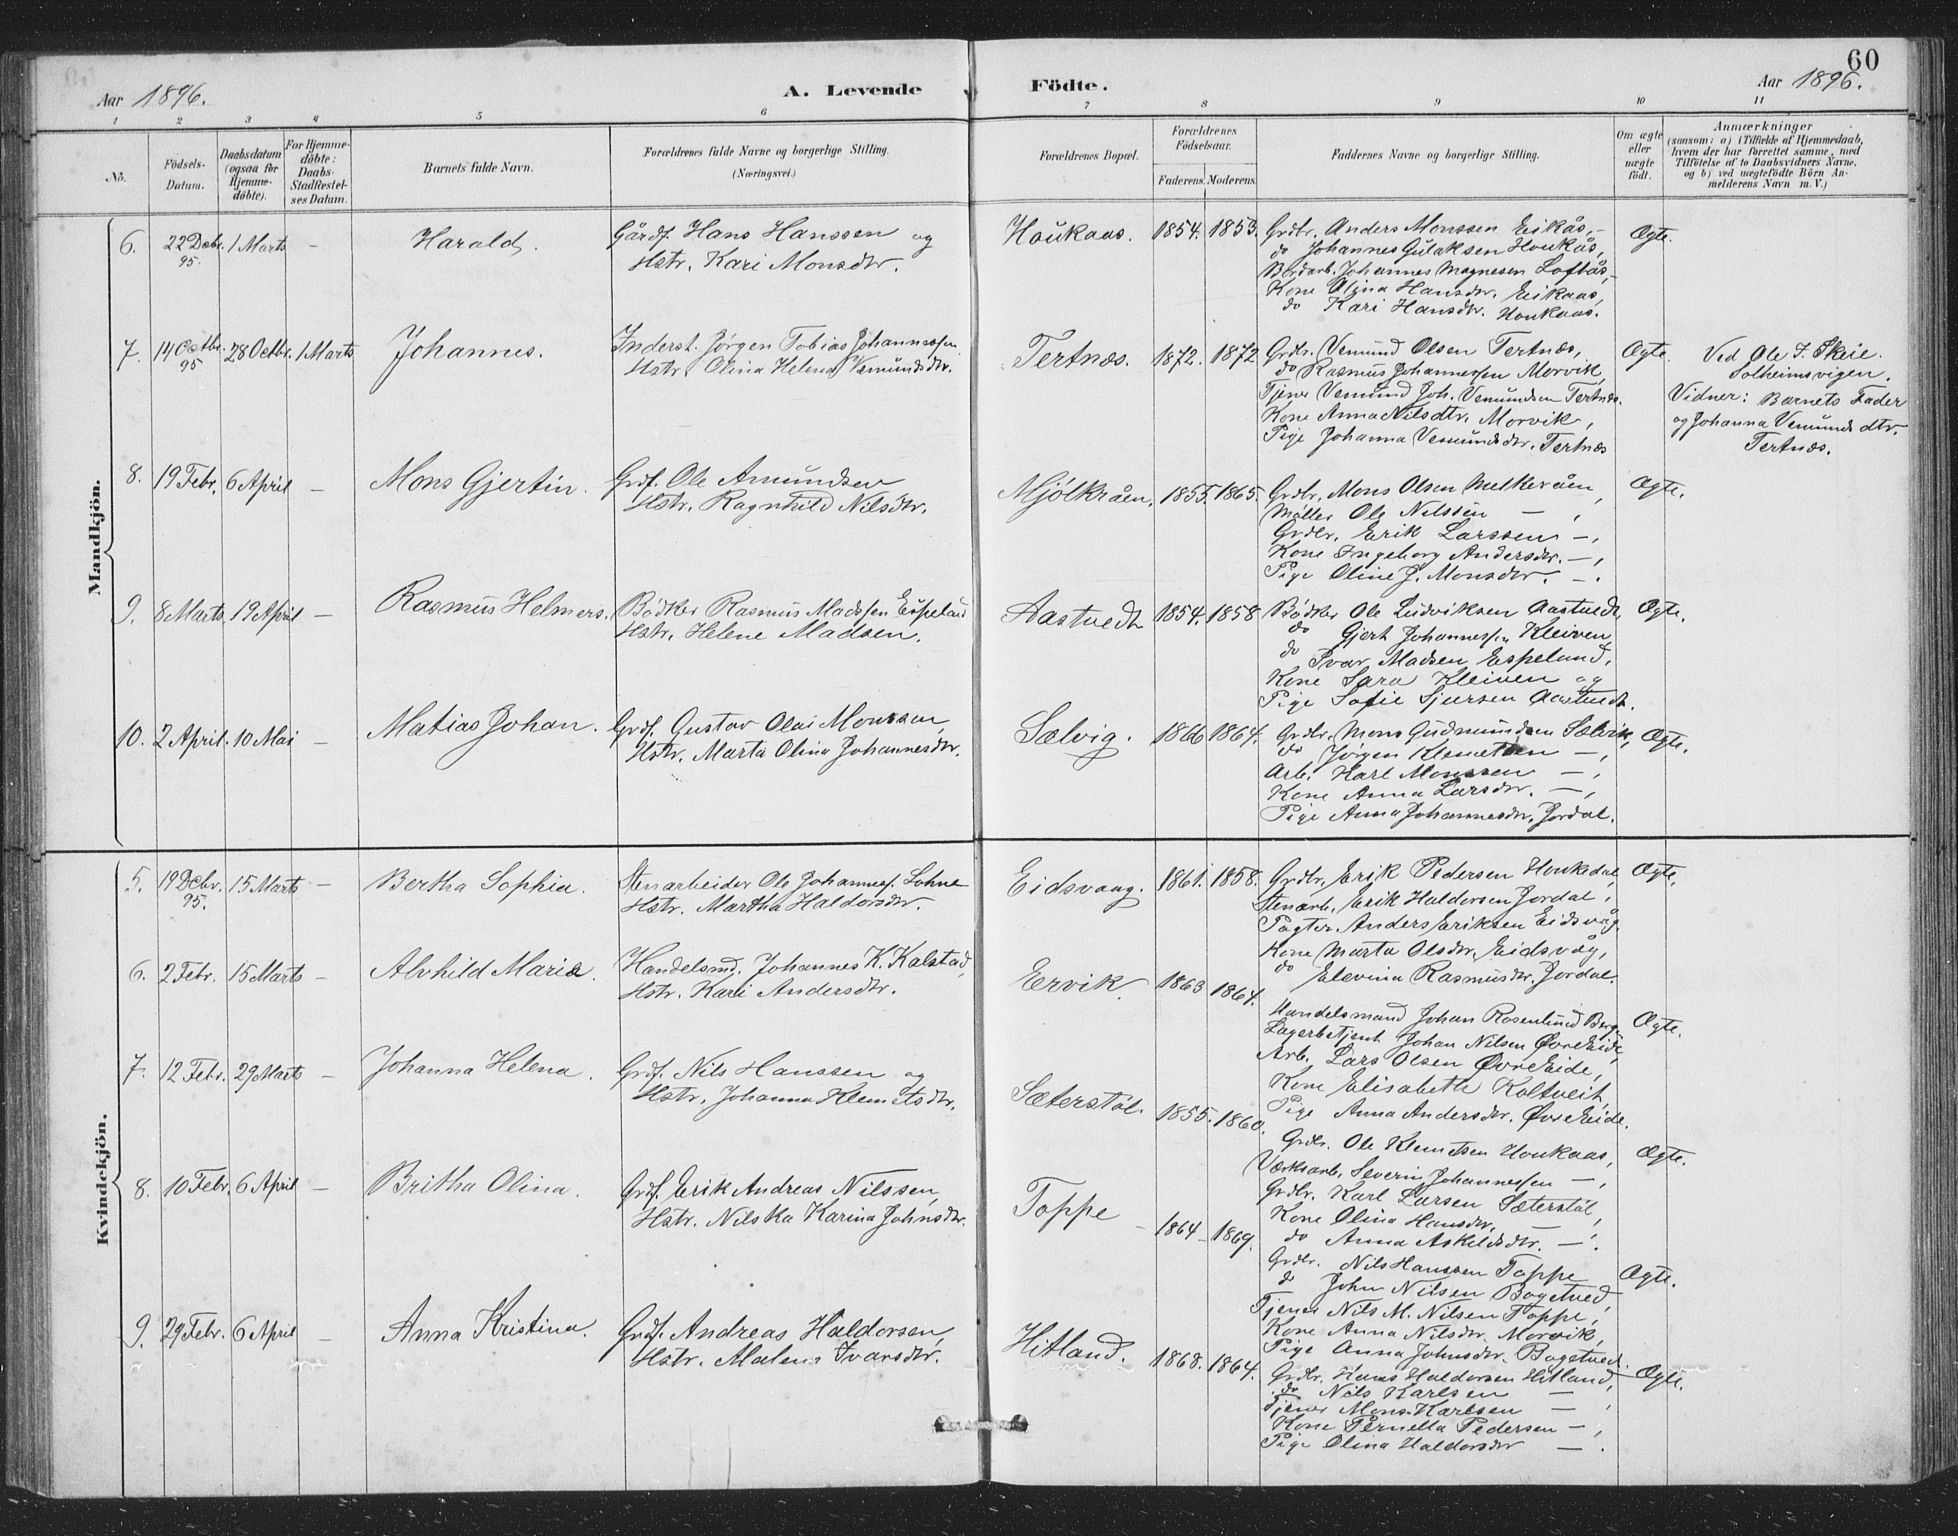 60
Aar 1896.
A. Levende Födte.
Aar 1896.
1 2 3 4 5 6 7 8 9 10 11
No.
Födsels-Datum.
Daabsdatum (ogsaa for Hjemme-döbte).
For Hjemme-döbte: Daabs-Stadfæstel-ses Datum.
Barnets fulde Navn.
Forældrenes fulde Navne og borgerlige Stilling.
(Næringsvei.)
Forældrenes Bopæl.
Forældrenes Födselsaar.
Faderens. Moderens.
Faddernes Navne og borgerlige Stilling.
Om ægte eller uægte födt.
Anmærkninger
(saasom: a) i Tilfælde af Hjemmedaab,
hvem der har forrettet samme, med
Tilföielse af to Daabsvidners Navne,
og b) ved uægtefödte Börn An-
melderens Navn m. V.)
Mandkjön.
6. 22 Debr. 95. 1 Marts – Harald.
Gårdf. Hans Hanssen og
Hstr. Kari Monsdtr.
Houkaas. 1854. 1853.
Grdbr. Anders Monssen Eikås,
do Johannes Gulaksen Houkås,
Bordarb. Johannes Magnesen Loftås,
Kone Olina Hansdtr. Eikaas,
do Kari Hansdtr. Houkaas.
Ægte.
7. 14 Octbr. 95 28 Octbr. 1 Marts Johannes.
Inderst. Jørgen Tobias Johannessen
Hstr Olina Helena Vemundsdtr.
Tertnæs. 1872. 1872
Grdbr. Vemund Olsen Tertnæs,
do Rasmus Johannessen Morvik,
Tjener Vemund Joh. Vemundsen Tertnæs.
Kone Anna Nilsdtr. Morvik,
Pige Johanna Vemundsdtr. Tertnæs
Ægte.
Ved Ole J. Skeie.
Solheimsvigen.
Vidner: Barnets Fader
og Johanna Vemundsdtr.
Tertnæs.
8. 19 Febr. 6 April – Mons Gjertin.
Grdf. Ole Amundsen
Hstr. Ragnhild Nilsdtr.
Mjølkråen. 1855. 1865.
Grdbr. Mons Olsen Melkeråen,
Møller Ole Nilssen – ,
Grdbr. Erik Larssen – ,
Kone Ingeborg Andersdtr. – ,
Pige Oline J. Monsdtr. – .
Ægte.
9. 8 Marts 19 April – Rasmus Helmers.
Bødker Rasmus Madssen Espeland
Hstr. Helene Madsen.
Aastvedt 1854. 1858
Bødker Ole Ludviksen Aastvedt,
do Gjert Johannessen Kleiven
do Ivar Madsen Espeland,
Kone Sara Kleiven og
Pige Sofie Sjursen Aastvedt.
Ægte.
10. 2 April. 10 Mai – Matias Johan.
Grdf. Gustav Olai Monssen,
Hstr. Marta Olina Johannesdtr.
Sælvig. 1866 1864.
Grdbr. Mons Gudmundsen Sælvik,
do Jørgen Klemetsen – ,
Arb. Karl Monssen – ,
Kone Anna Larsdtr. – ,
Pige Anna Johannesdtr. Jordal.
Ægte.
Kvindekjön.
5. 19 Debr. 95. 15 Marts – Bertha Sophia.
Stenarbeider Ole Johannes. Lohne
Hstr. Martha Haldorsdtr.
Eidsvaag. 1861. 1858.
Grdbr. Erik Pedersen Houksdal,
Stenarb. Erik Haldorsen Jordal,
Pagter Anders Eriksen Eidsvåg.
Kone Marta Olsdtr. Eidsvåg,
do Elevina Rasmusdtr. Jordal.
Ægte.
6. 2 Febr. 15 Marts – Alvhild Maria.
Handelsmd. Johannes K. Kalstad,
Hstr. Kari Andersdtr.
Ervik. 1863 1864.
Handelsmand Johan Rosenlund Berg.
Lagerbetjent Johan Nilsen Øvre Eide,
Arb. Lars Olsen Øvre Eide,
Kone Elisabeth Koltveit,
Pige Anna Andersdtr. Øvre Eide.
Ægte.
7. 12 Febr. 29 Marts – Johanna Helena.
Grdf. Nils Hanssen og
Hstr. Johanna Klemetsdtr.
Sæterstøl. 1855. 1860.
Grdbr. Ole Klemetsen Houkaas,
Værksarb. Severin Johannessen – ,
Grdbr. Karl Larsen Sæterstøl,
Kone Olina Hansdtr. – ,
do Anna Askeldsdtr. – .
Ægte.
8. 10 Febr. 6 April – Britha Olina.
Grdf. Erik Andreas Nilssen,
Hstr. Nilska Karina Johnsdtr.
Toppe – 1864 – 1869.
Grdbr. Nils Hanssen Toppe
do John Nilsen Bogetved,
Tjener Nils M. Nilsen Toppe,
Kone Anna Nilsdtr. Morvik,
Pige Anna Johnsdtr. Bogetved.
Ægte.
9. 29 Febr. 6 April – Anna Kristina.
Grdf. Andreas Haldorsen,
Hstr. Malena Ivarsdtr.
Hitland. 1868. 1864.
Grdbr. Hans Haldorsen Hitland,
do Nils Karlsen –
Tjener Mons Karlsen – ,
Kone Pernella Pedersen – ,
Pige Olina Haldorsdtr – .
Ægte.